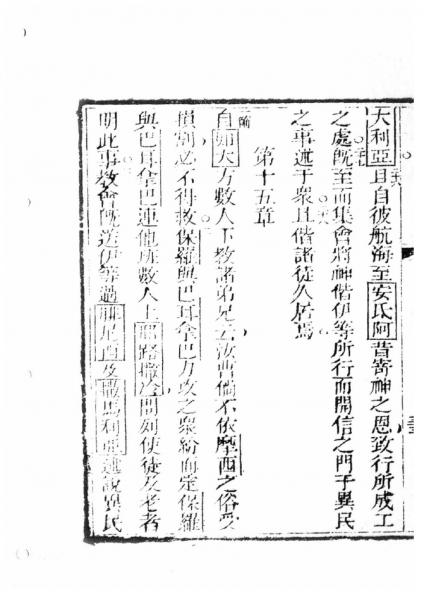 大利亞且自彼航海至安氐阿昔寄神之恩致行所成工
之處既至而集會將神偕伊等所行而開信之門于異民
之事述于衆且偕諸徒久居焉
第十五章
自如大方數人下教諸弟兄云汝曹倘不依摩西之俗受
損割必不得救保羅與巴耳拿巴力攻之衆紛而定保羅
與巴耳拿巴連他所數人上耶路撒冷問列使徒及老者
明此事教會既送伊等過腓尼西及撒馬利亞述說異民